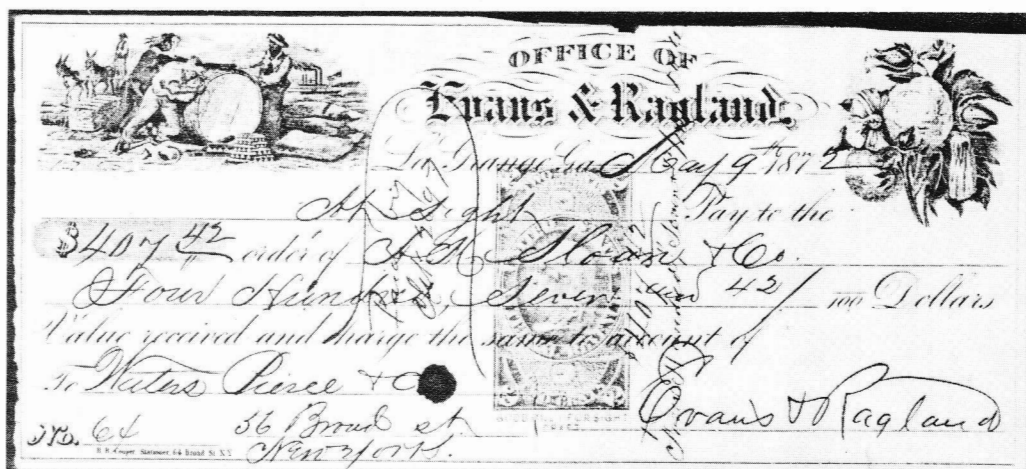 OFFICE OF
Evans & Ragland.
La Grange, Ga. May 9th 1872
At Sight Pay to the
$407 42 order of A. K. Sloan & Co.
Four Hundred Seven and 42/100 Dollars
Value received and charge the same to account of
To Waters Pierce & Co
No. 64 56 Broad st
New York.
Evans & Ragland
Stationer, 64 Broad St. N.Y.